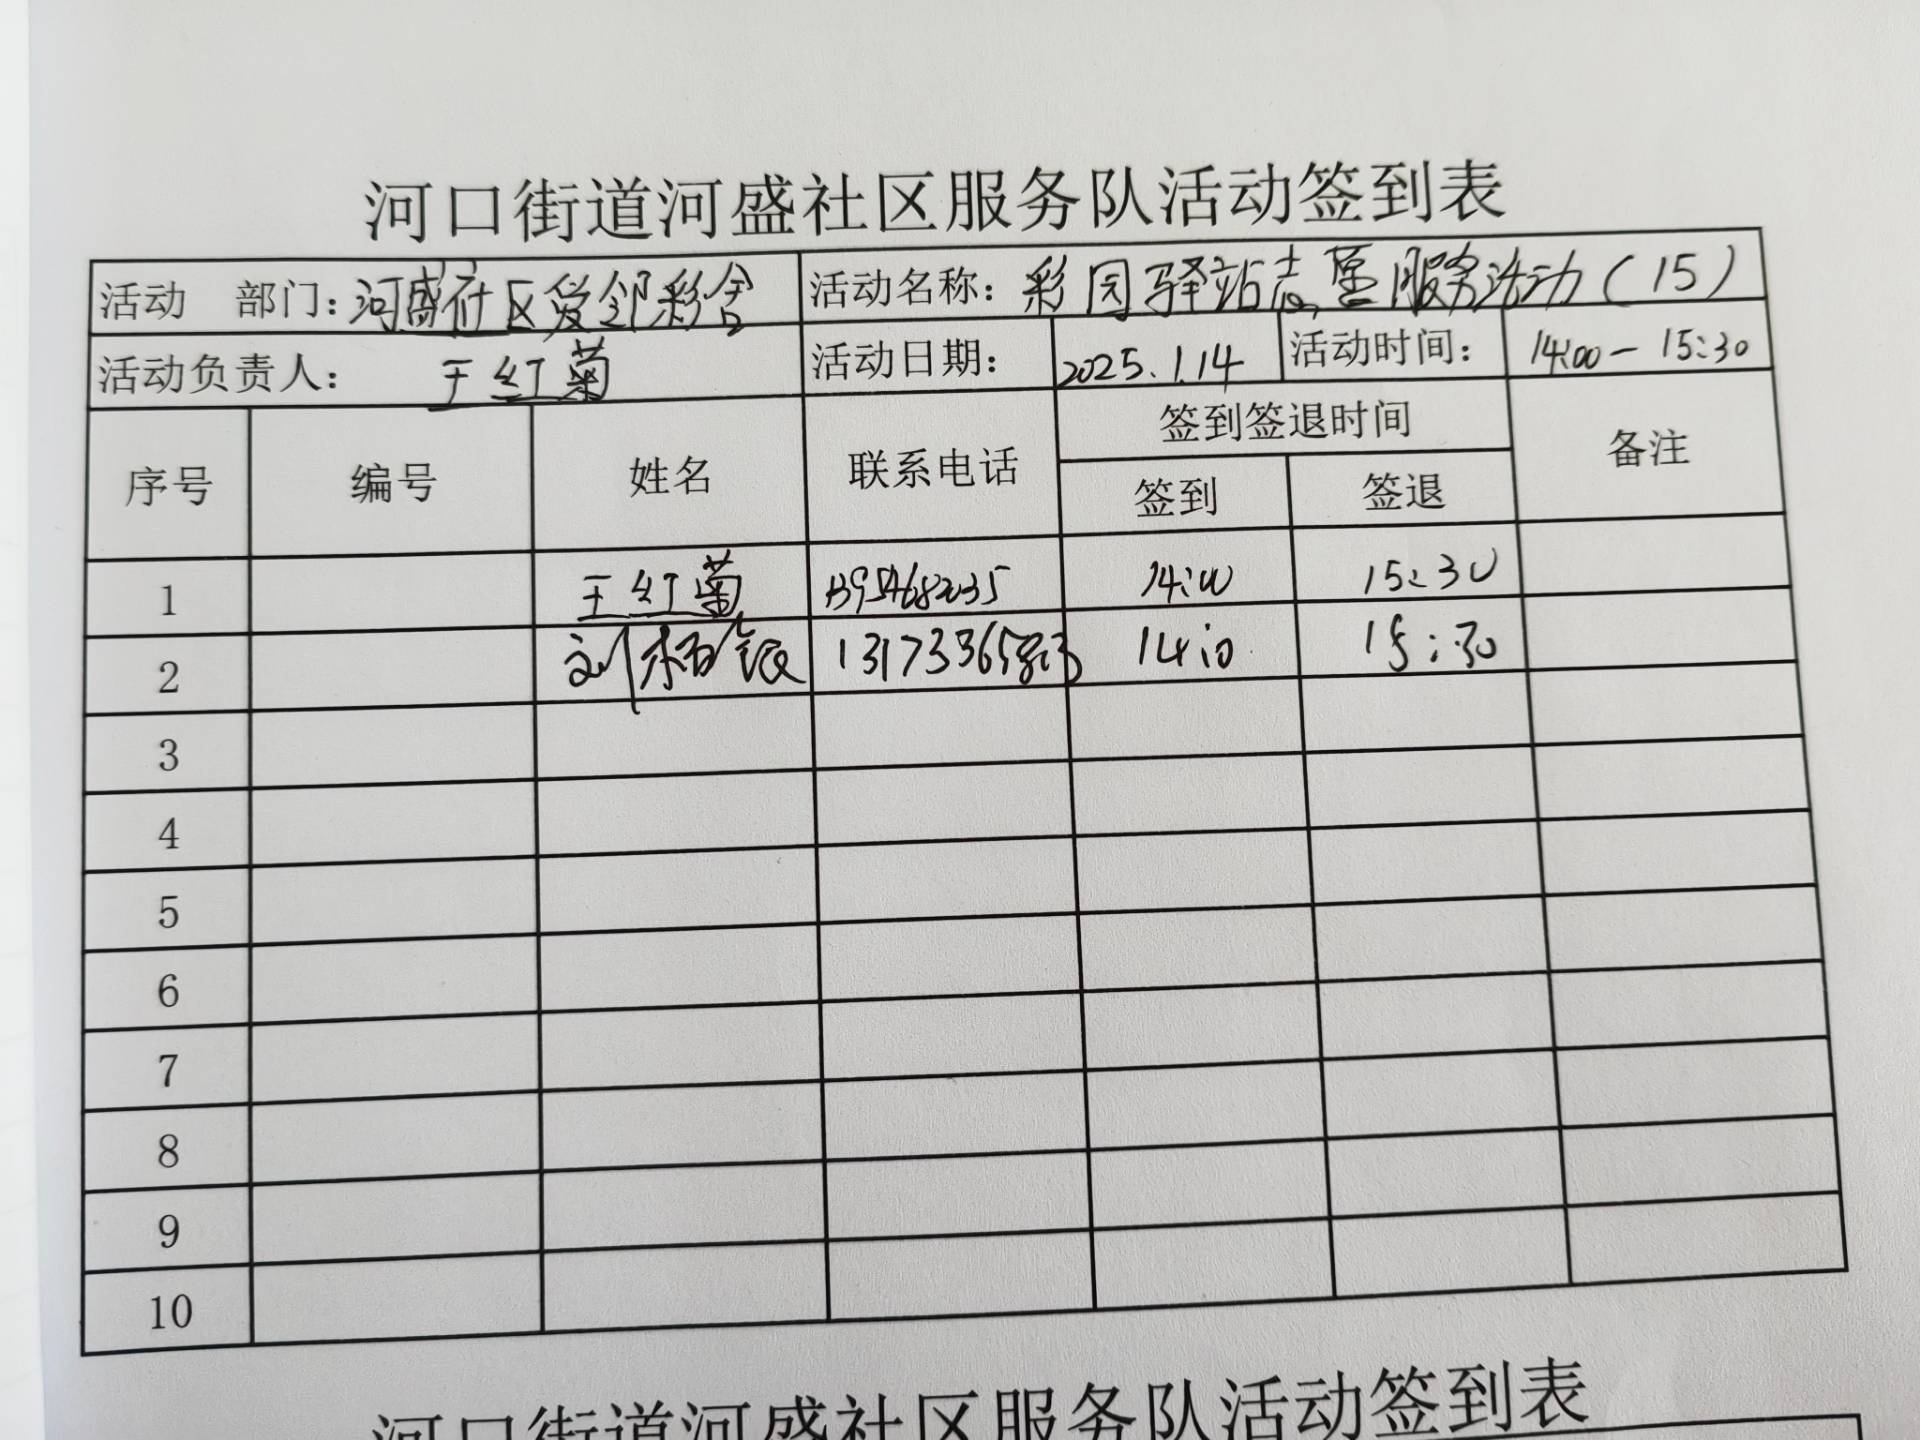 河口街道河盛社区服务队活动签到表
活动 部门：河盛社区爱邻彩舍 活动名称：彩园驿站志愿服务活动（15）
活动负责人：王红菊 活动日期：2025.1.14 活动时间：14:00-15:30
序号 编号 姓名 联系电话 签到签退时间 备注
签到 签退
1 王红菊 14:00 15:30
2 刘 14:10 15:30
3
4
5
6
7
8
9
10
河口街道河盛社区服务队活动签到表